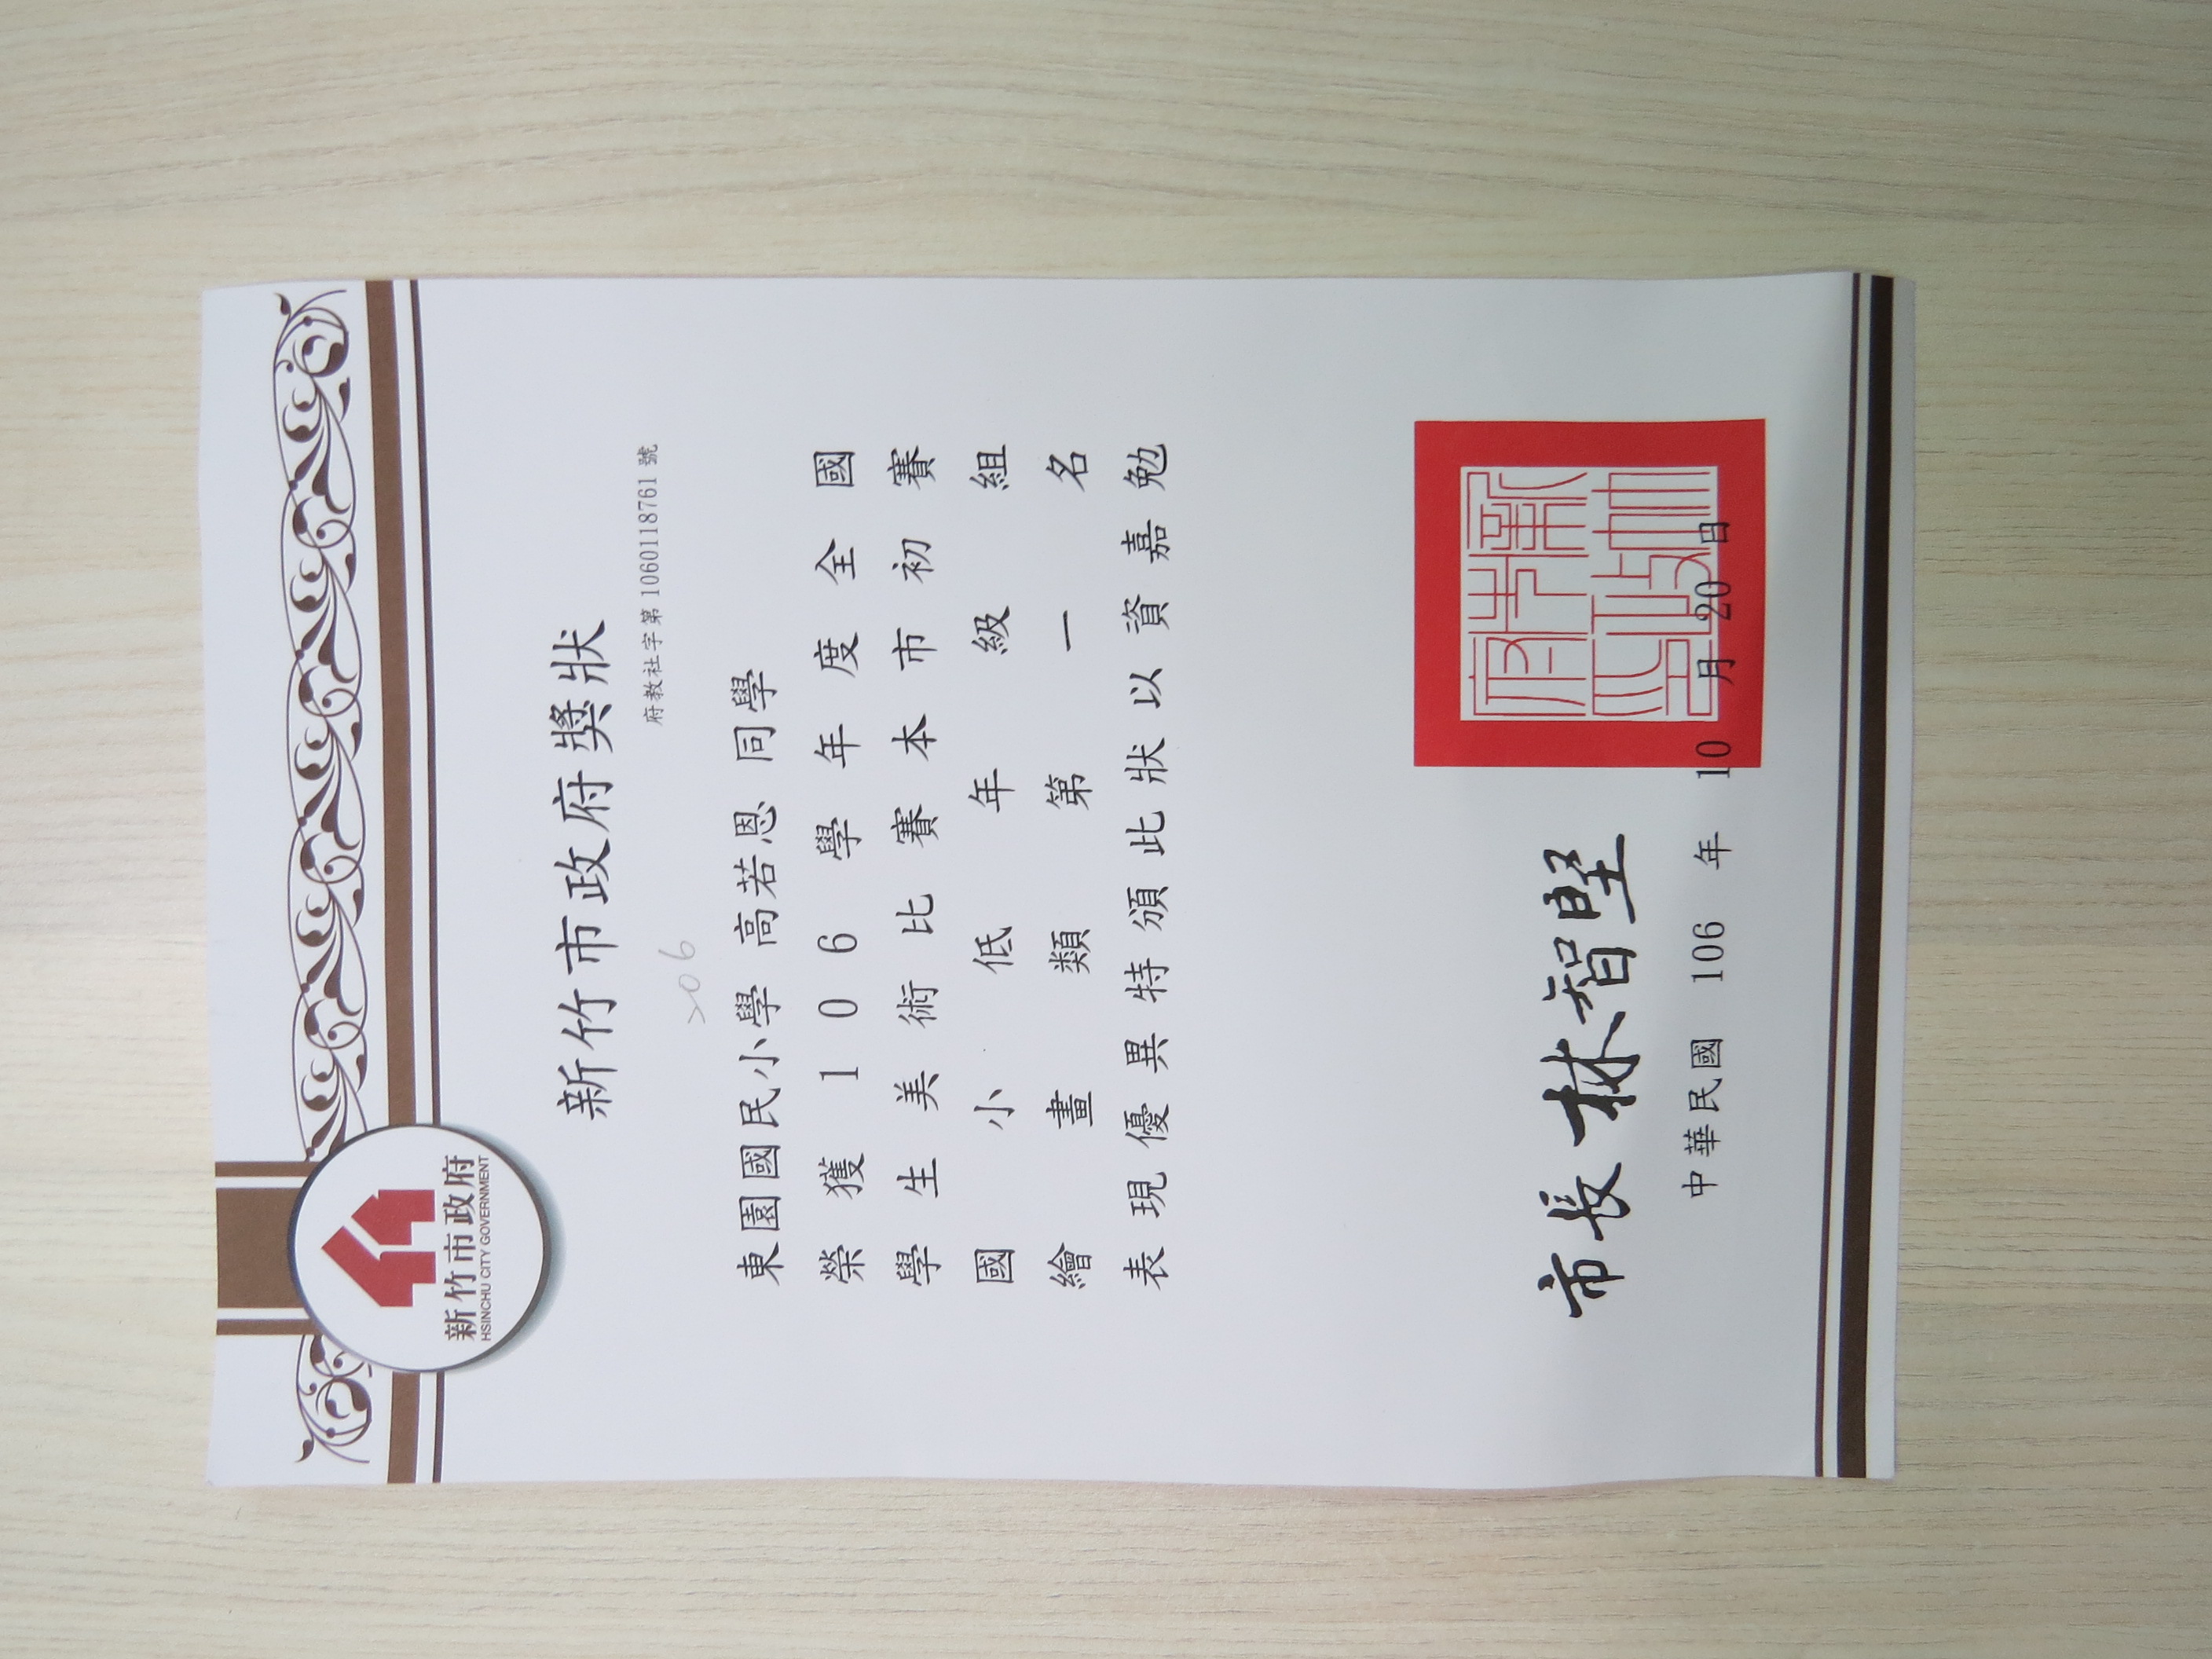 新竹市政府
HSINCHU CITY GOVERNMENT
新竹市政府獎狀
府教社字第 1060118761 號
206
東園國民小學 高若恩 同學
榮獲106學年度全國
學生美術比賽本市初賽
國小低年級組
繪畫類第一名
表現優異特頒此狀以資嘉勉
市長 林智堅
新竹市政府印
中華民國 106 年 10 月 20 日